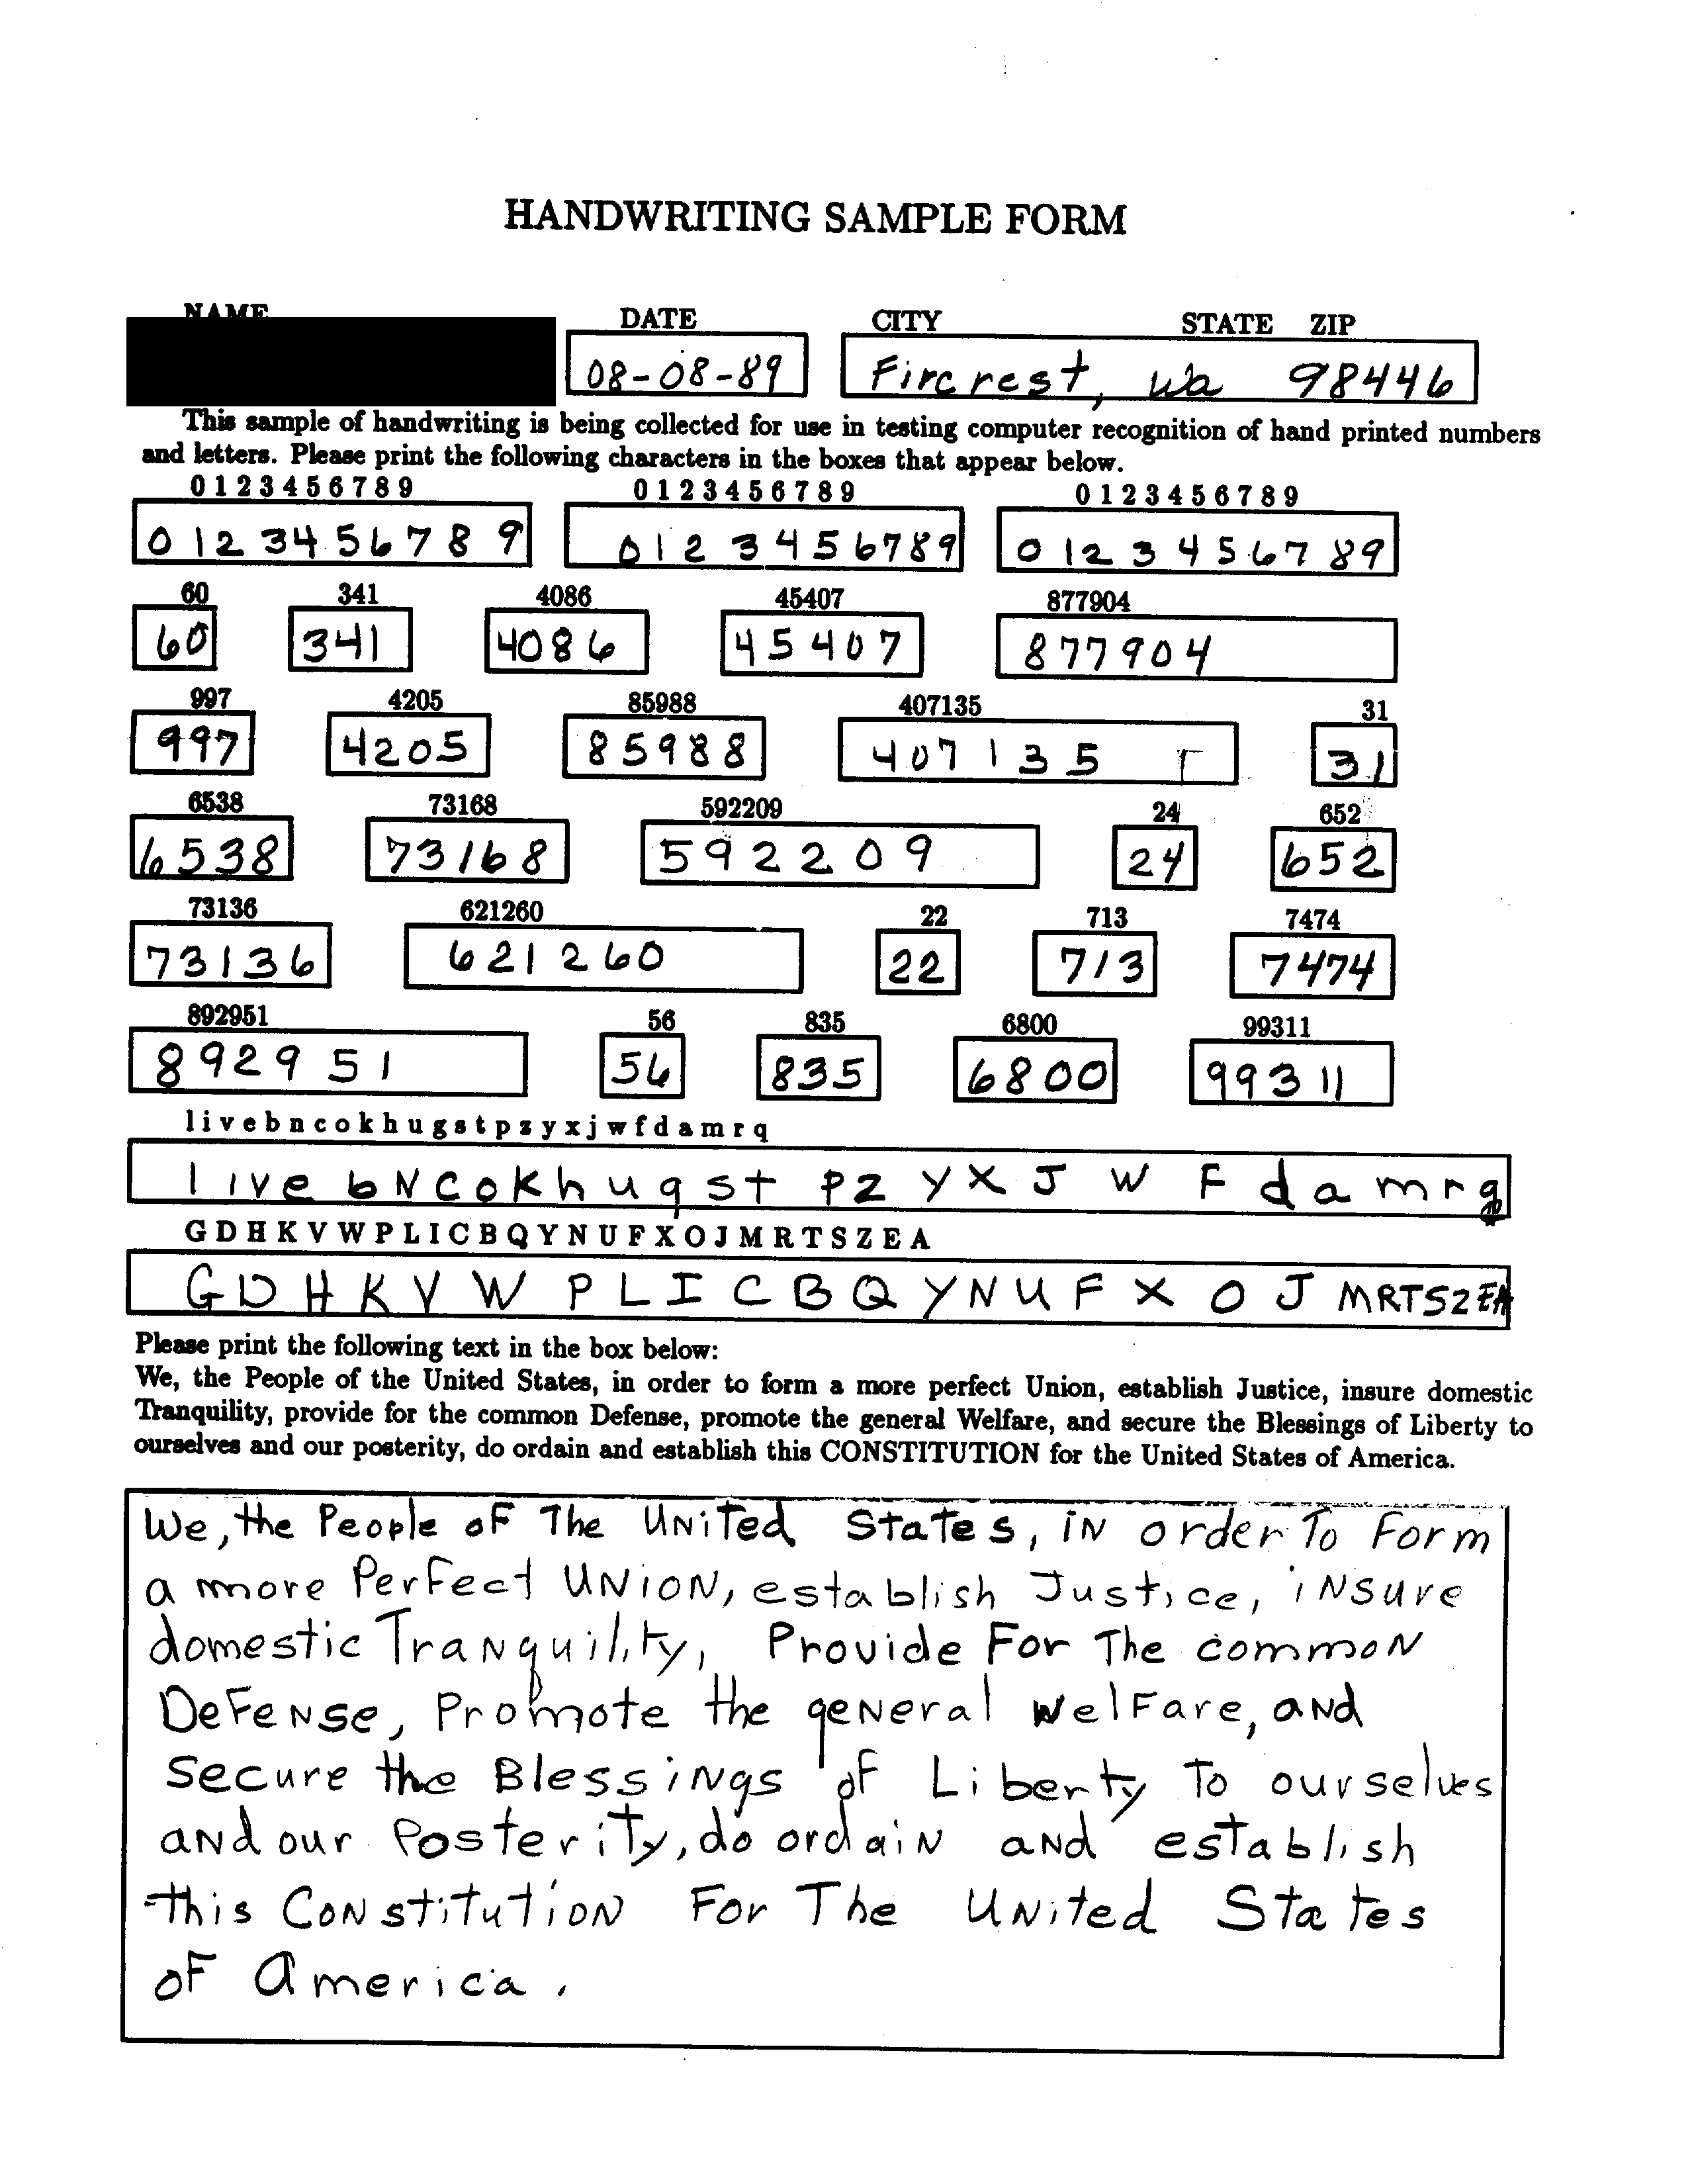 HANDWRITING SAMPLE FORM
NAME DATE CITY STATE ZIP
08-08-89 Fircrest, Wa 98446
This sample of handwriting is being collected for use in testing computer recognition of hand printed numbers
and letters. Please print the following characters in the boxes that appear below.
0 1 2 3 4 5 6 7 8 9 0 1 2 3 4 5 6 7 8 9 0 1 2 3 4 5 6 7 8 9
0 1 2 3 4 5 6 7 8 9 0 1 2 3 4 5 6 7 8 9 0 1 2 3 4 5 6 7 8 9
60 341 4086 45407 877904
60 341 4086 45407 877904
997 4205 85988 407135 31
997 4205 85988 407135 31
6538 73168 592209 24 652
6538 73168 592209 24 652
73136 621260 22 713 7474
73136 621260 22 713 7474
892951 56 835 6800 99311
892951 56 835 6800 99311
l i v e b n c o k h u g s t p z y x j w f d a m r q
l i v e b N C o K h u g s t p z y x J W F d a m r q
G D H K V W P L I C B Q Y N U F X O J M R T S Z E A
G D H K V W P L I C B Q Y N U F X O J M R T S Z E A
Please print the following text in the box below:
We, the People of the United States, in order to form a more perfect Union, establish Justice, insure domestic
Tranquility, provide for the common Defense, promote the general Welfare, and secure the Blessings of Liberty to
ourselves and our posterity, do ordain and establish this CONSTITUTION for the United States of America.
We, the People oF The UNiTed StaTes, iN order To Form
a more PerFect UNiON, establish Justice, iNsure
domestic TraNquility, Provide For The commoN
DeFeNse, Promote the geNeral WelFare, aNd
Secure the BlessiNgs oF Liberty To ourselves
aNd our PosteriTy, do ordaiN aNd establish
this CoNstitutioN For The UNited States
oF America.